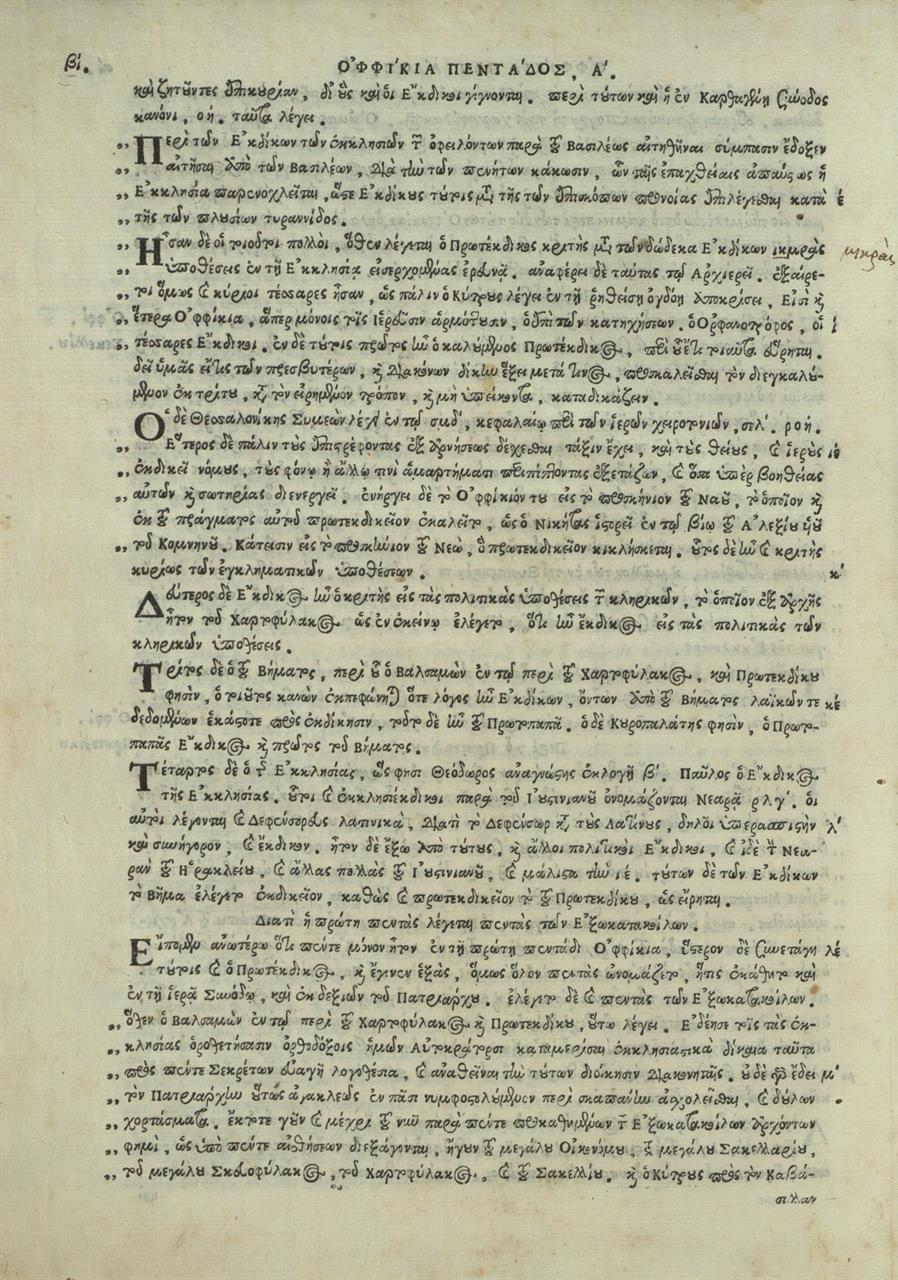 βί.
ὈΦΦΊΚΙΑ ΠΕΝΤΆΔΟΣ, Α΄.
καὶ ζητοῦντες ἐπικουρίαν, δι' οὓς καὶ οἱ Ἔκδικοι γίγνονται. περὶ τούτων καὶ ἡ ἐν Καρθαγένῃ Σύνοδος
κανόνι, οή. ταῦτα λέγει.
„ Περὶ τῶν Ἐκδίκων τῶν ἐκκλησιῶν τῶν ὀφειλόντων παρὰ τοῦ Βασιλέως αἰτηθῆναι σύμπασιν ἔδοξεν
„ αἰτῆσαι ἀπὸ τῶν Βασιλέων, διὰ τὴν τῶν πενήτων κάκωσιν, ὧν ταῖς ἐπαχθείαις ἀπαύστως ἡ
„ Ἐκκλησία παρενοχλεῖται, ὥστε Ἐκδίκους τούτοις μετὰ τῆς τῶν ἐπισκόπων προνοίας ἐπιλέγεσθαι κατὰ έ
„ τῆς τῶν πλουσίων τυραννίδος.
„ Ἦσαν δὲ οἱ τοιοῦτοι πολλοὶ, ὅθεν λέγεται ὁ Πρωτέκδικος κριτὴς μετὰ τῶν δώδεκα Ἐκδίκων ἰκμρὰς μικρὰς
„ ὑποθέσεις ἐν τῇ Ἐκκλησίᾳ εἰσερχομένας ἐρευνᾷ. ἀναφέρει δὲ ταύτας τῷ Ἀρχιερεῖ. ἐξαίρε-
„ τοι ὅμως καὶ κύριοι τέσσαρες ἦσαν, ὡς πάλιν ὁ Κύτρους λέγει ἐν τῇ ῥηθείσῃ ὀγδόῃ ἀποκρίσει, Εἰσὶ καὶ
„ ἕτερα Ὀφφίκια, ἅπερ μόνοις τοῖς Ἱερεῦσιν ἁρμόττουσιν, ὁ ἐπὶ τῶν κατηχήσεων. ὁ Ὀρφανοτρόφος, οἱ ί
„ τέσσαρες Ἔκδικοι. ἐν δὲ τούτοις πρῶτος ἦν ὁ καλούμενος Πρωτέκδικος, περὶ οὗ ἔτι τοιαῦτα εὕρηται.
δεῖ ὑμᾶς εἴ τις τῶν πρεσβυτέρων, καὶ Διακόνων δίκην ἕξει μετά τινος, προσκαλεῖσθαι τὸν διεγκαλού-
μενον ἐκ τρίτου, κατὰ τὸν εἰρημένον τρόπον, καὶ μὴ ὑπείκοντα, καταδικάζειν.
Ὁ δὲ Θεσσαλονίκης Συμεὼν λέγει ἐν τῷ σμδ΄, κεφαλαίῳ περὶ τῶν ἱερῶν χειροτονιῶν, σελ΄. ροή.
„ Ἕτερος δὲ πάλιν τοὺς ἐπιστρέφοντας ἐξ ἀρνήσεως δέχεσθαι τάξιν ἔχει, καὶ τοὺς θείους, καὶ ἱεροὺς ιέ
„ ἐκδικεῖ νόμους, τοὺς φόνῳ ἢ ἄλλῳ τινὶ ἁμαρτήματι περιπίπτοντας ἐξετάζων, καὶ ὅσα ὑπὲρ βοηθείας
„ αὐτῶν καὶ σωτηρίας διενεργεῖ. ἐνήργει δὲ τὸ Ὀφφίκιόν του εἰς τὸ προσκήνιον τοῦ Ναοῦ, τὸ ὁποῖον καὶ
„ ἐκ τοῦ πράγματος αὐτοῦ πρωτεκδικεῖον ἐκαλεῖτο, ὡς ὁ Νικήτας ἱστορεῖ ἐν τῷ βίῳ τοῦ Ἀλεξίου υἱοῦ
„ τοῦ Κομνηνοῦ. Κάτεισιν εἰς τὸ προσκήνιον τοῦ Νεὼ, ὃ πρωτεκδικεῖον κικλήσκεται. οὗτος δὲ ἦν καὶ κριτὴς
κυρίως τῶν ἐγκληματικῶν ὑποθέσεων. κ΄
Δεύτερος δὲ Ἔκδικος ἦν ὁ κριτὴς εἰς τὰς πολιτικὰς ὑποθέσεις τῶν κληρικῶν, τὸ ὁποῖον ἐξ ἀρχῆς
ἦτον τοῦ Χαρτοφύλακος ὡς ἐν ἐκείνῳ ἐλέγετο, ὅτι ἦν ἔκδικος εἰς τὰς πολιτικὰς τῶν
κληρικῶν ὑποθέσεις.
Τρίτος δὲ ὁ τοῦ Βήματος, περὶ οὗ ὁ Βαλσαμὼν ἐν τῷ περὶ τοῦ Χαρτοφύλακος, καὶ Πρωτεκδίκου
φησὶν, ὁ τοιοῦτος κανὼν ἐκπεφώνηται ὅτε λόγος ἦν Ἐκδίκων, ὄντων ἀπὸ τοῦ Βήματος λαϊκῶν τε κέ
δεδομένων ἑκάστοτε πρὸς ἐκδίκησιν, τοῦτο δὲ ἦν τοῦ Πρωτοπαπᾶ. ὁ δὲ Κυροπαλάτης φησὶν, ὁ Πρωτο-
παπᾶς Ἔκδικος καὶ πρῶτος τοῦ Βήματος.
Τέταρτος δὲ ὁ τῆς Ἐκκλησίας, ὥς φησι Θεόδωρος ἀναγνώστης ἐκλογῇ β΄. Παῦλος ὁ Ἔκδικος
τῆς Ἐκκλησίας. οὗτοι καὶ ἐκκλησιέκδικοι παρὰ τοῦ Ἰουστινιανοῦ ὀνομάζονται Νεαρᾷ ρλγ΄. οἱ
αὐτοὶ λέγονται καὶ Δεφένσορες λατινικὰ, Διατὶ τὸ Δεφένσωρ κατὰ τοὺς Λατίνους, δηλοῖ ὑπερασπιστὴν λ΄
καὶ συνήγορον, καὶ ἔκδικον. ἦτον δὲ ἔξω ἀπὸ τούτους, καὶ ἄλλοι πολιτικοὶ Ἔκδικοι, καὶ ἰδὲ τὴν Νεα-
ρὰν τοῦ Ἡρακλείου, καὶ ἄλλας πολλὰς τοῦ Ἰουστινιανοῦ, καὶ μάλιστα τὴν ιέ. τούτων δὲ τῶν Ἐκδίκων
τὸ Βῆμα ἐλέγετο ἐκδικεῖον, καθὼς καὶ πρωτεκδικεῖον τὸ τοῦ Πρωτεκδίκου, ὡς εἴρηται.
Διατὶ ἡ πρώτη πεντὰς λέγεται πεντὰς τῶν Ἐξωκατακοίλων.
Εἴπομεν ἀνωτέρω ὅτι πέντε μόνον ἦτον ἐν τῇ πρώτῃ πεντάδι Ὀφφίκια, ὕστερον δὲ συνετάγη λέ
τούτοις καὶ ὁ Πρωτέκδικος, καὶ ἔγινεν ἑξὰς, ὅμως ὅλον πεντὰς ὠνομάζετο, ἥτις ἐκάθητο καὶ
ἐν τῇ ἱερᾷ Συνόδῳ, καὶ ἐκ δεξιῶν τοῦ Πατριάρχου. ἐλέγετο δὲ καὶ πεντὰς τῶν Ἐξωκατακοίλων.
„ ὅθεν ὁ Βαλσαμὼν ἐν τῷ περὶ τοῦ Χαρτοφύλακος καὶ Πρωτεκδίκου, οὕτω λέγει. Ἐδέησε τοῖς τὰς ἐκ-
„ κλησίας ὁροθετήσασιν ὀρθοδόξοις ἡμῶν Αὐτοκράτορσι καταμερίσαι ἐκκλησιαστικὰ δίκαια ταῦτα
„ πρὸς πέντε Σεκρέτων εὐαγῆ λογοθέσια, καὶ ἀναθεῖναι τὴν τούτων διοίκησιν Διακονηταῖς. οὐδὲ γὰρ ἔδει μ΄
„ τὸν Πατριάρχην οὕτως ἀγακλεῶς ἐν παστῷ νυμφοστολούμενον περὶ σκαπάνην ἀσχολεῖσθαι, καὶ δούλων
„ χορτάσματα. ἔκτοτε γοῦν καὶ μέχρι τοῦ νῦν παρὰ πέντε προκαθημένων τῶν Ἐξωκατακοίλων ἀρχόντων
„ φημὶ, ὡς ὑπὸ πέντε αἰσθήσεων διεξάγονται, ἤγουν τοῦ μεγάλου Οἰκονόμου, τοῦ μεγάλου Σακελλαρίου,
„ τοῦ μεγάλου Σκευοφύλακος, τοῦ Χαρτοφύλακος, καὶ τοῦ Σακελλίου. καὶ ὁ Κύτρους πρὸς τὸν Καβά-
σιλαν